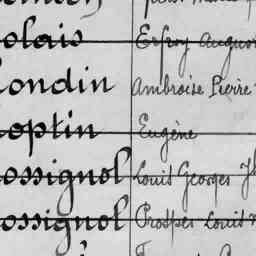 olais Ersoy August
ondin Ambroise Pierre
optin Eugène
ossignol Louis Georges
ossignol Prosper Louis